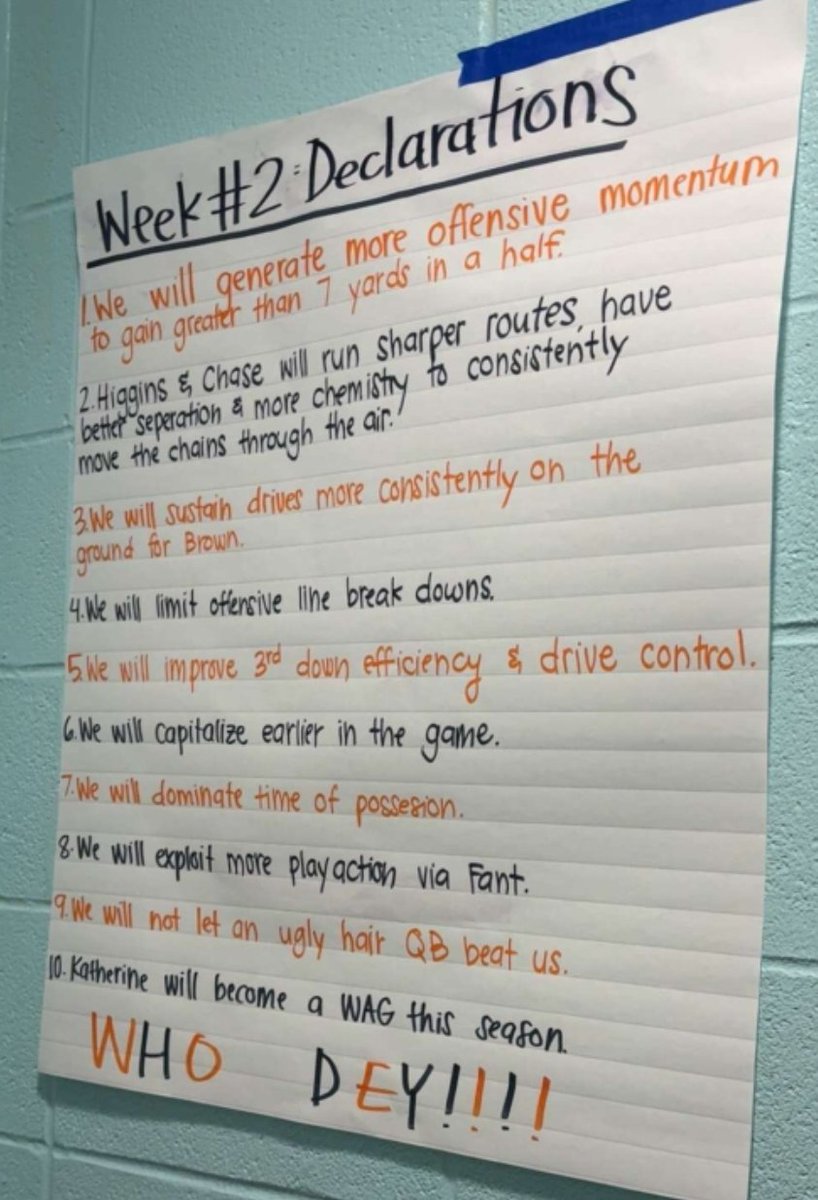 Week #2: Declarations
1. We will generate more offensive momentum
to gain greater than 7 yards in a half.
2. Higgins & Chase will run sharper routes, have
better seperation & more chemistry to consistently
move the chains through the air.
3. We will sustain drives more consistently on the
ground for Brown.
4. We will limit offensive line break downs.
5. We will improve 3rd down efficiency & drive control.
6. We will capitalize earlier in the game.
7. We will dominate time of possesion.
8. We will exploit more play action via Fant.
9. We will not let an ugly hair QB beat us.
10. Katherine will become a WAG this season.
WHO DEY!!!!!